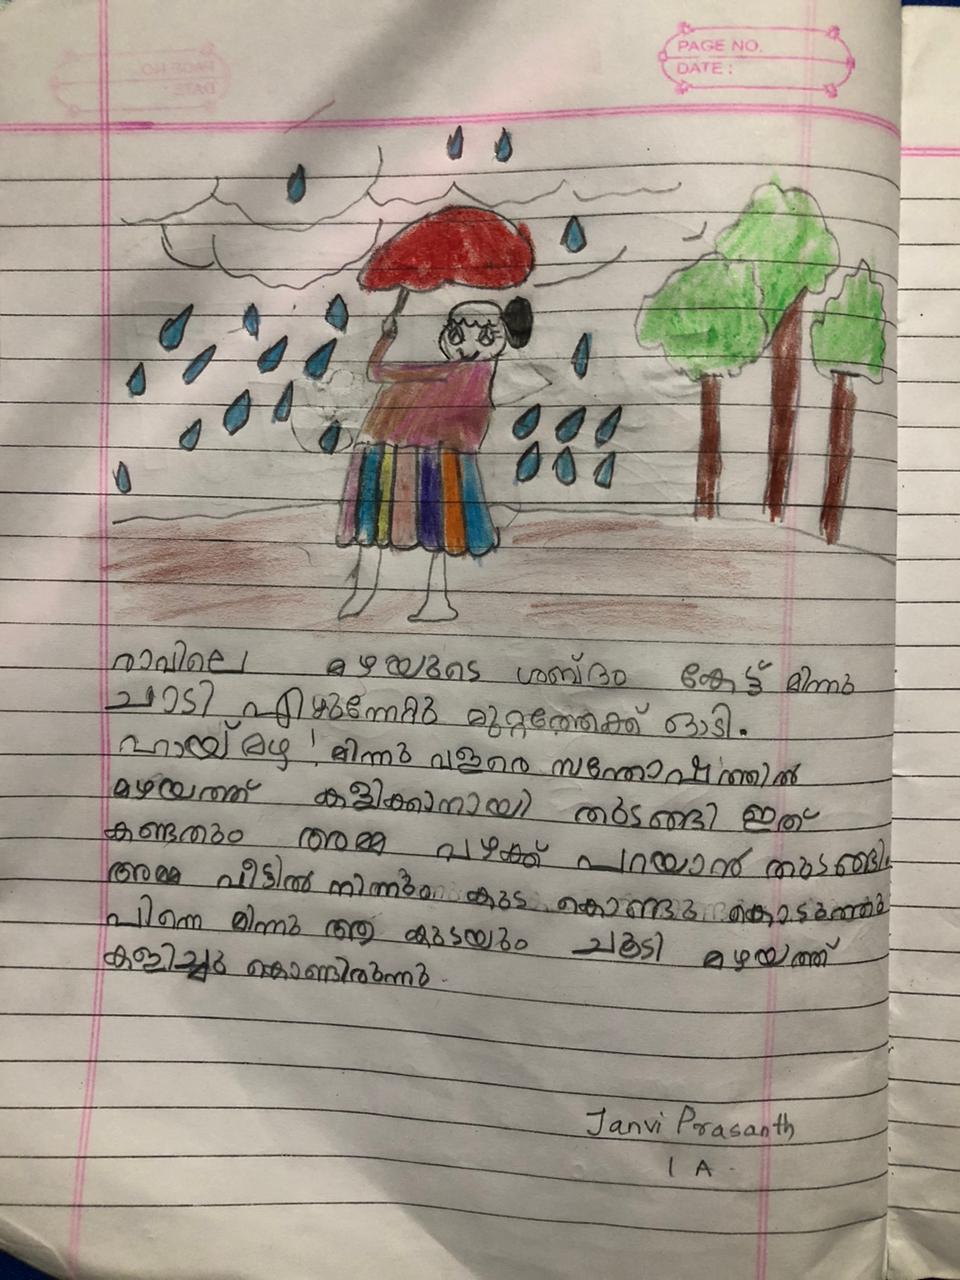 PAGE NO.
DATE :
രാവിലെ മഴയുടെ ശബ്ദം കേട്ട് മിന്നു
ചാടി എഴുന്നേറ്റു മുറ്റത്തേക്ക് ഓടി.
ഹായ് മഴ! മിന്നു വളരെ സന്തോഷത്തിൽ
മഴയത്ത് കളിക്കാനായി തുടങ്ങി ഇത്
കണ്ടതും അമ്മ വഴക്ക് പറയാൻ തുടങ്ങി.
അമ്മ വീട്ടിൽ നിന്നും കുട കൊണ്ടു കൊടുത്തു
പിന്നെ മിന്നു ആ കുടയും ചൂടി മഴയത്ത്
കളിച്ചു കൊണ്ടിരുന്നു.
Janvi Prasanth
1 A